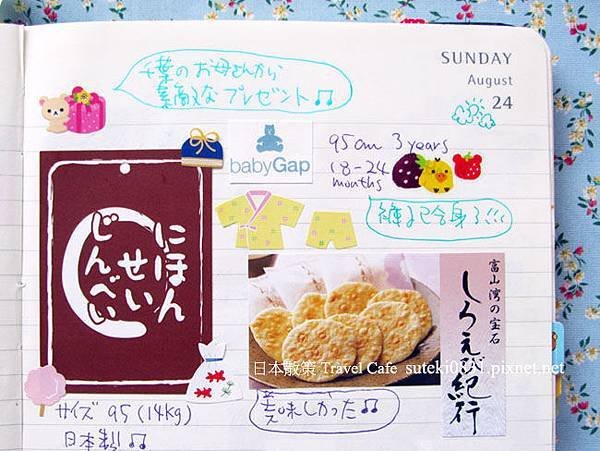 千葉のお母さんから
素敵なプレゼント♫
SUNDAY
August
24
babyGap
95cm 3years
18-24
months
褲子已合身了!!!
にほん
せい
じんべい
富山湾の宝石
しろえび紀行
日本散策 Travel Cafe suteki0811.pixnet.net
サイズ 95(14kg)
日本製♫
美味しかった♫